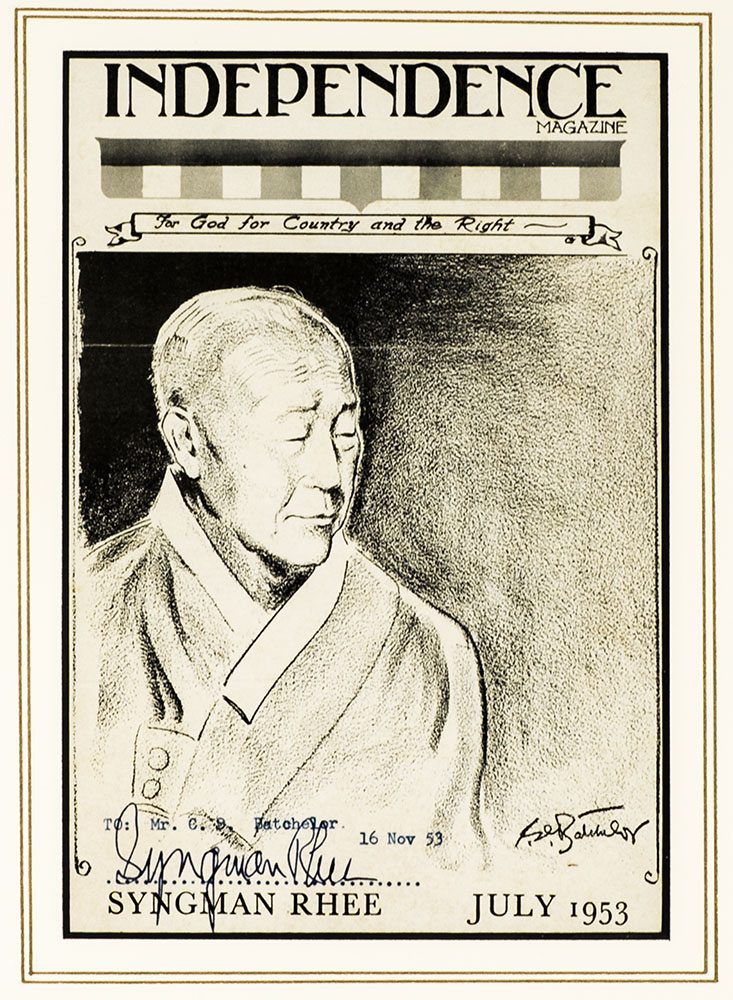 INDEPENDENCE
MAGAZINE
For God for Country and the Right
TO: Mr. C. D. Batchelor.
16 Nov 53
C.D. Batchelor
Syngman Rhee
SYNGMAN RHEE JULY 1953